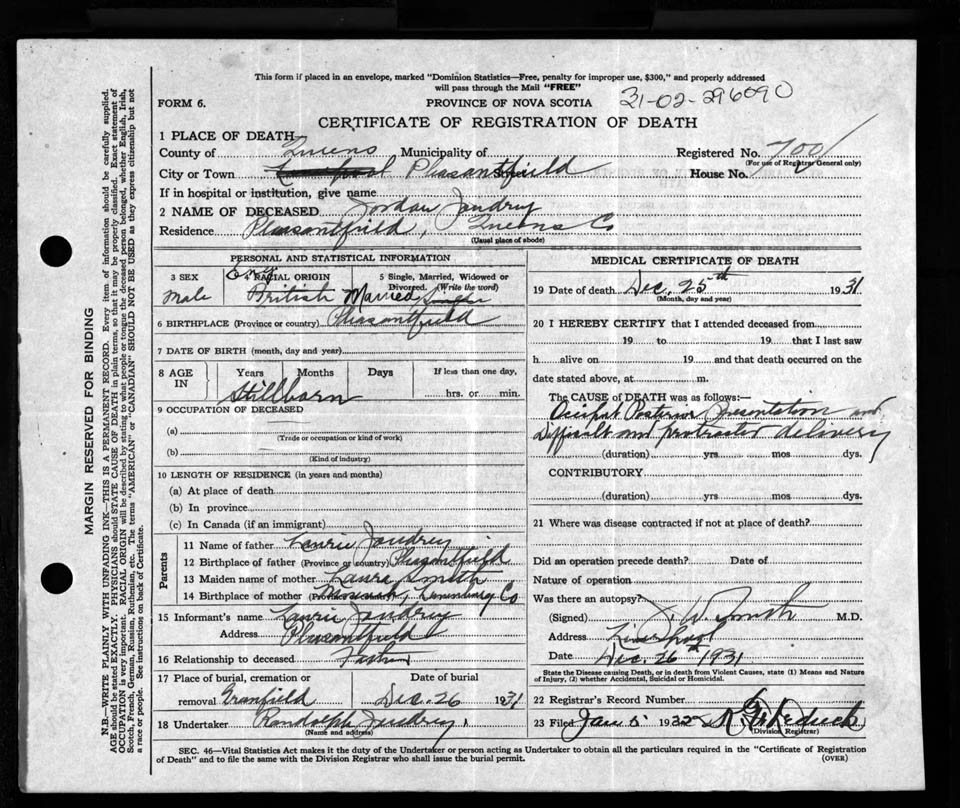 This form if placed in an envelope, marked "Dominion Statistics—Free, penalty for improper use, $300," and properly addressed
will pass through the Mail "FREE"
FORM 6.
PROVINCE OF NOVA SCOTIA
31-02-296090
CERTIFICATE OF REGISTRATION OF DEATH
1 PLACE OF DEATH
County of Queens Municipality of Registered No. 700
(For use of Registrar General only)
City or Town Liverpool Pleasantfield Street House No.
If in hospital or institution, give name
2 NAME OF DECEASED Jordan Joudrey
Residence Pleasantfield, Queens Co
(Usual place of abode)
PERSONAL AND STATISTICAL INFORMATION
3 SEX 4 RACIAL ORIGIN 5 Single, Married, Widowed or
Divorced. (Write the word)
Male British Married Single
6 BIRTHPLACE (Province or country) Pleasantfield
7 DATE OF BIRTH (month, day and year)
8 AGE IN Years Months Days If less than one day,
hrs. or min.
Stillborn
9 OCCUPATION OF DECEASED
(a)
(Trade or occupation or kind of work)
(b)
(Kind of industry)
10 LENGTH OF RESIDENCE (in years and months)
(a) At place of death
(b) In province
(c) In Canada (if an immigrant)
Parents
11 Name of father Laurie Joudrey
12 Birthplace of father (Province or country) Pleasantfield
13 Maiden name of mother Laura Smith
14 Birthplace of mother Lunenburg Co
15 Informant's name Laurie Joudrey
Address Pleasantfield
16 Relationship to deceased Father
17 Place of burial, cremation or Date of burial
removal Greenfield Dec. 26 1931
18 Undertaker Randolph Joudrey
(Name and address)
MEDICAL CERTIFICATE OF DEATH
19 Date of death Dec. 25th 1931
(Month, day and year)
20 I HEREBY CERTIFY that I attended deceased from
19 to 19 that I last saw
h alive on 19 and that death occurred on the
date stated above, at m.
The CAUSE OF DEATH was as follows:—
Occiput Posterior Presentation and
Difficult and protracted delivery
(duration) yrs. mos. dys.
CONTRIBUTORY
(duration) yrs. mos. dys.
21 Where was disease contracted if not at place of death?
Did an operation precede death? Date of
Nature of operation
Was there an autopsy?
(Signed) J. W. Smith M.D.
Address Liverpool
Date Dec. 26th 1931
State the Disease causing Death, or in death from Violent Causes, state (1) Means and Nature
of Injury, (2) whether Accidental, Suicidal or Homicidal.
22 Registrar's Record Number
23 Filed Jan 5 1932
(Division Registrar)
SEC. 46—Vital Statistics Act makes it the duty of the Undertaker or person acting as Undertaker to obtain all the particulars required in the "Certificate of Registration
of Death" and to file the same with the Division Registrar who shall issue the burial permit. (OVER)
MARGIN RESERVED FOR BINDING
N.B.—WRITE PLAINLY WITH UNFADING INK—THIS IS A PERMANENT RECORD. Every item of information should be carefully supplied.
AGE should be stated EXACTLY. PHYSICIANS should STATE CAUSE OF DEATH in plain terms, so that it may be properly classified. Exact statement of
OCCUPATION is very important. RACIAL ORIGIN will be described by stating to what people or tongue the deceased person belonged, whether English, Irish,
Scotch, French, German, Russian, Ruthenian, etc. The terms "AMERICAN" or "CANADIAN" SHOULD NOT BE USED as they express citizenship but not
a race or people. See instructions on back of Certificate.